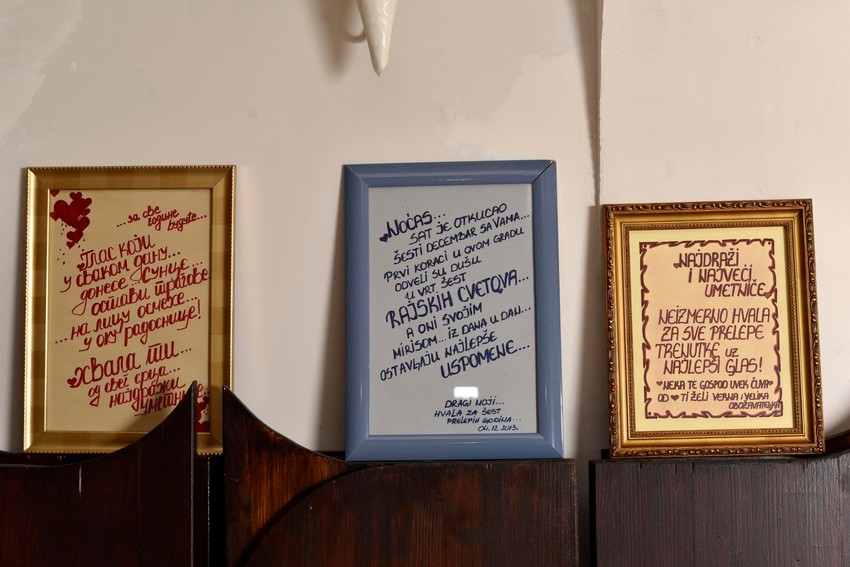 ...за све
године
будуће...
Глас који
у сваком дану...
донесе...Сунце...
остави трагове
...на лицу осмехе...
у оку радоснице!
Хвала ти...
од свег срца...
најдражи
уметниче
Noćas...
SAT JE OTKUCAO
ŠESTI DECEMBAR SA VAMA...
PRVI KORACI U OVOM GRADU
ODVELI SU DUŠU
U VRT ŠEST
RAJSKIH CVETOVA...
A ONI SVOJIM
MIRISOM...IZ DANA U DAN...
OSTAVLJAJU NAJLEPŠE
USPOMENE...
DRAGI NOJI...
HVALA ZA ŠEST
PRELEPIH GODINA...
04.12.2013.
NAJDRAŽI
I NAJVEĆI
UMETNIČE,
NEIZMERNO HVALA
ZA SVE PRELEPE
TRENUTKE UZ
NAJLEPŠI GLAS!
NEKA TE GOSPOD UVEK ČUVA
OD ♥ TI ŽELI VERNA I VELIKA
OBOŽAVATELJKA